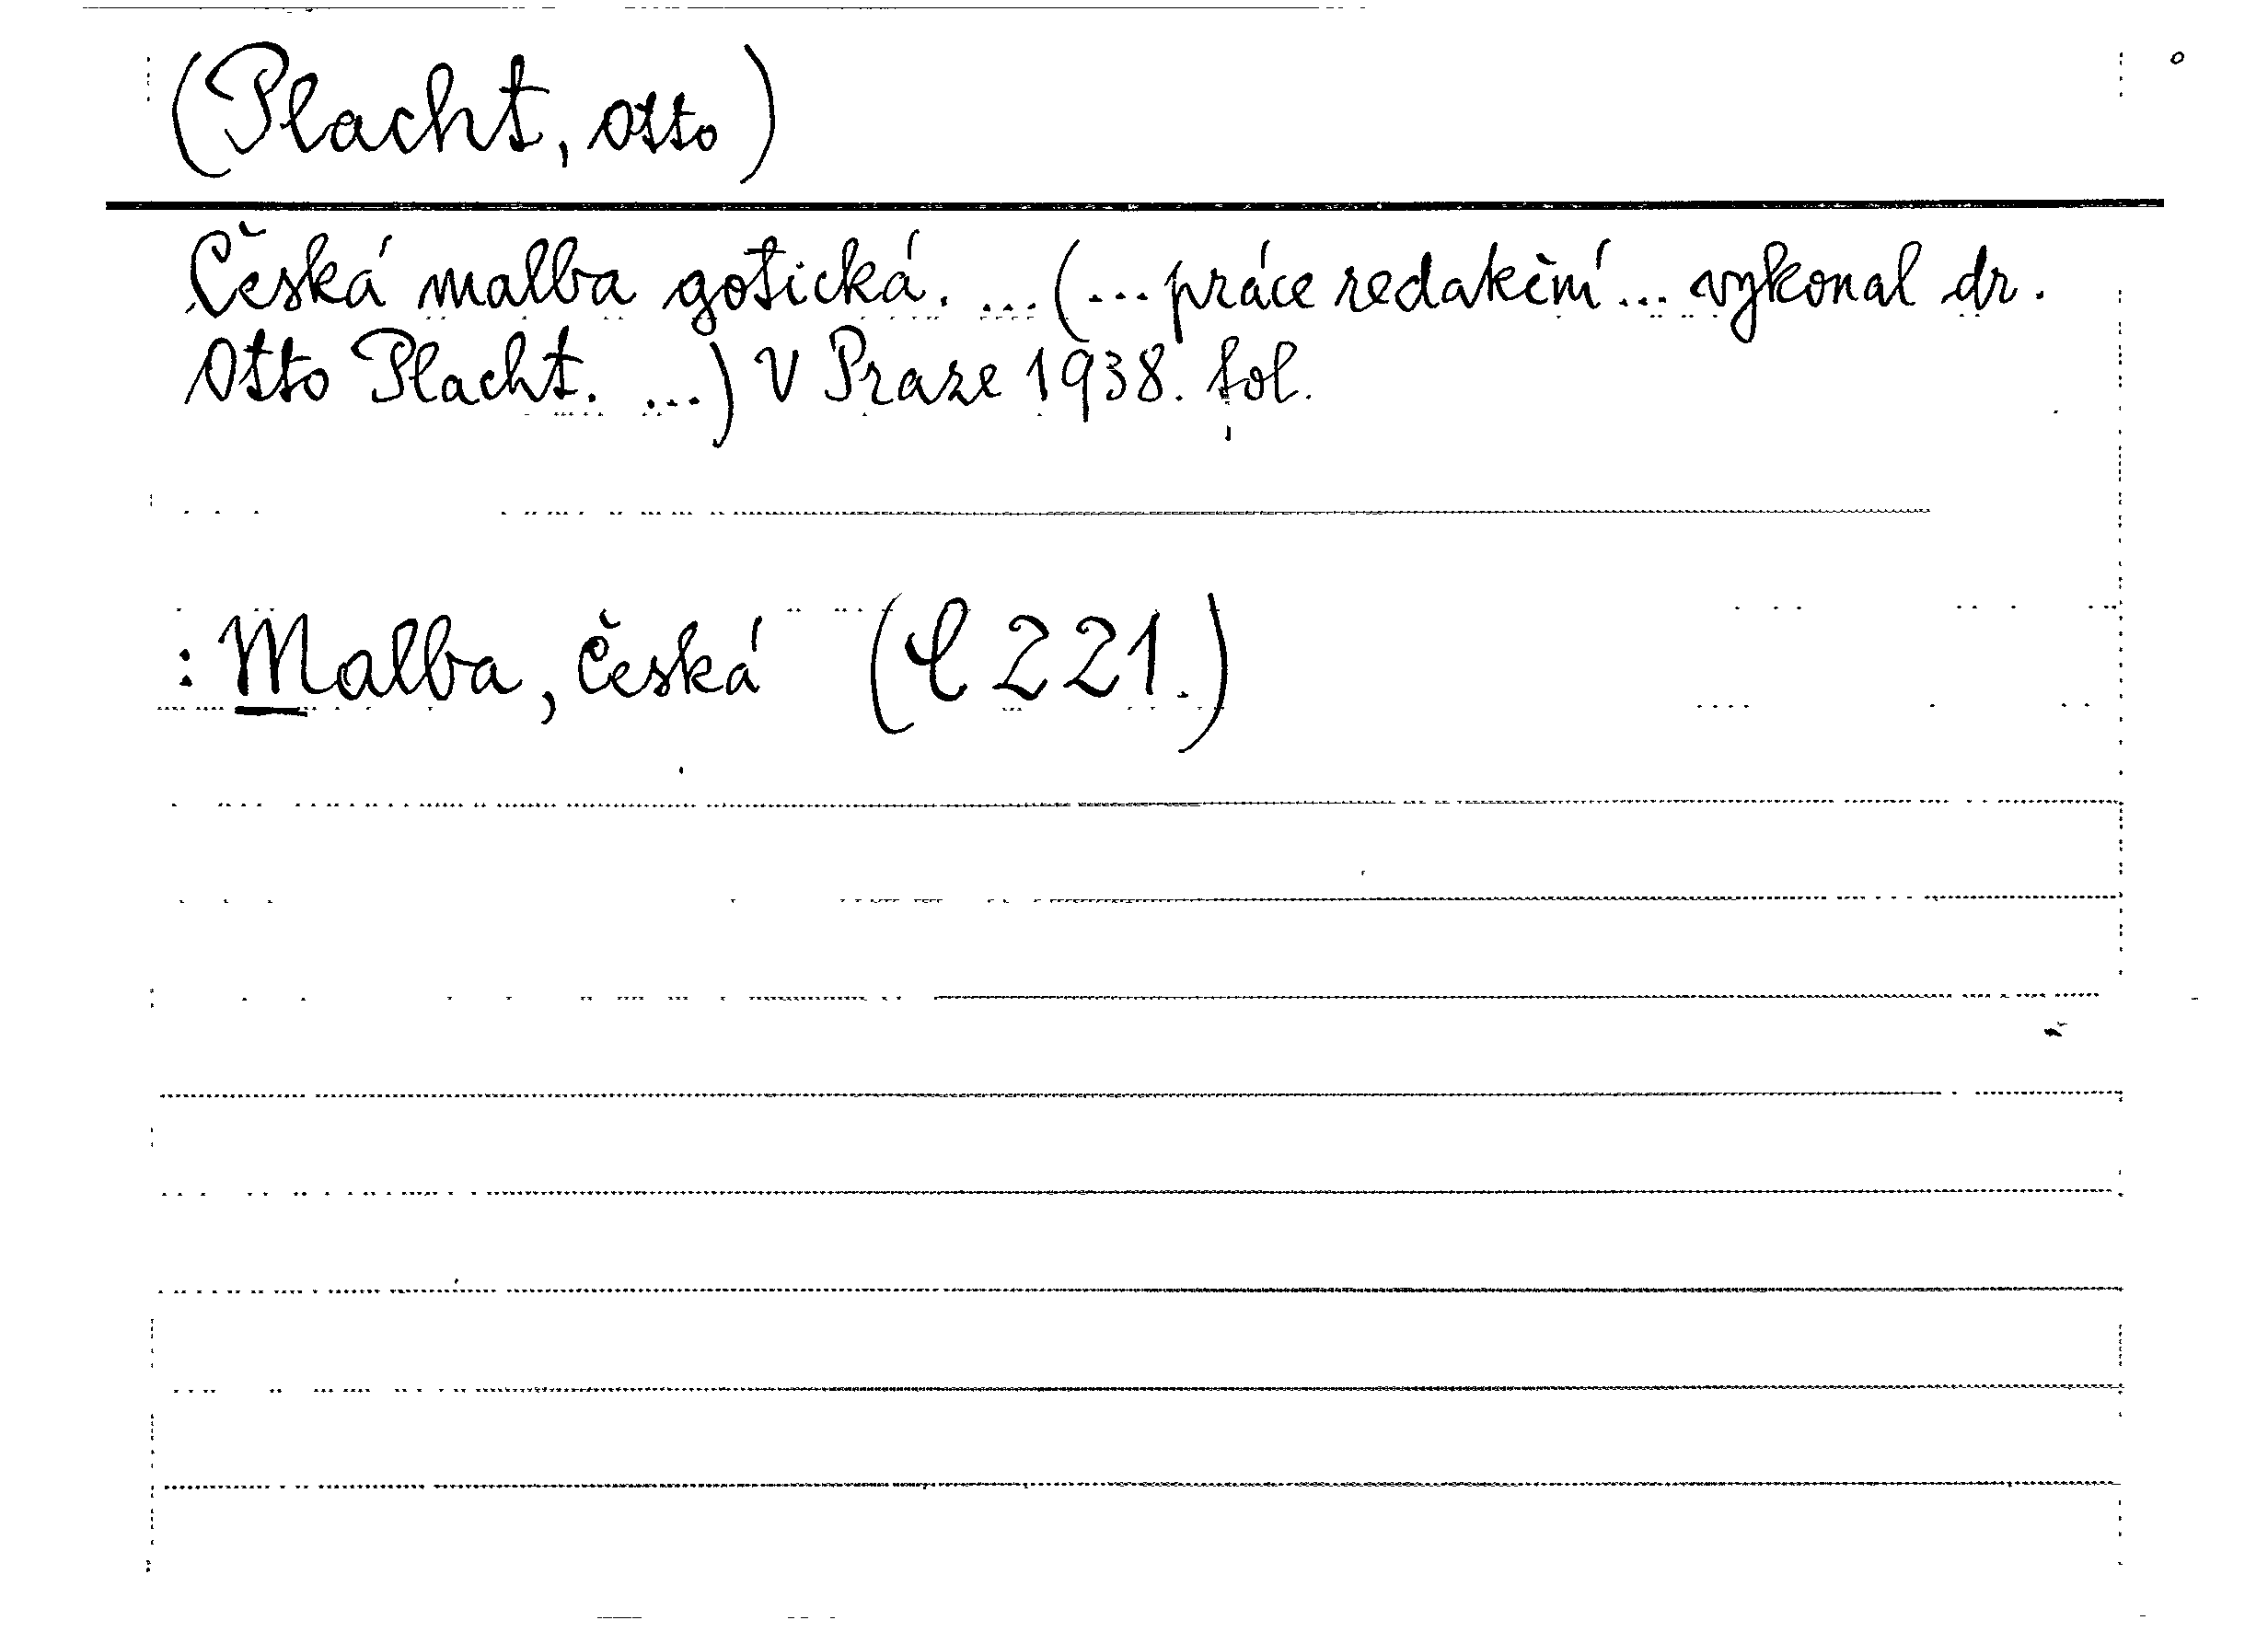 (Placht, Otto)
Česká malba gotická. ... (... práce redakční ... vykonal dr.
Otto Placht. ...) V Praze 1938. fol.
: Malba, česká (C 221.)